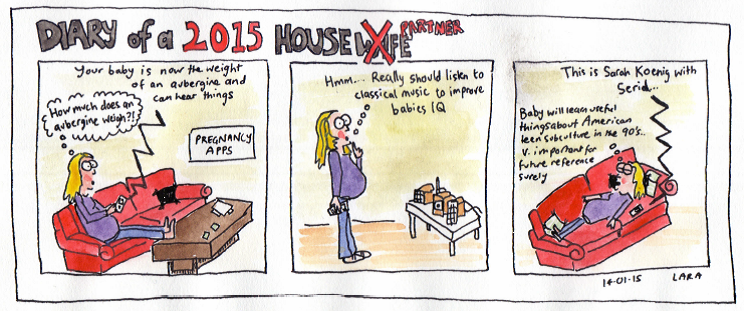 DIARY of a 2015 HOUSEWIFE PARTNER
Your baby is now the weight
of an aubergine and
can hear things
How much does an
aubergine weigh?!
PREGNANCY
APPS
Hmm... Really should listen to
classical music to improve
babies IQ
This is Sarah Koenig with
Serial...
Baby will learn useful
things about American
teen subculture in the 90's..
V. important for
future reference
surely
14-01-15 LARA